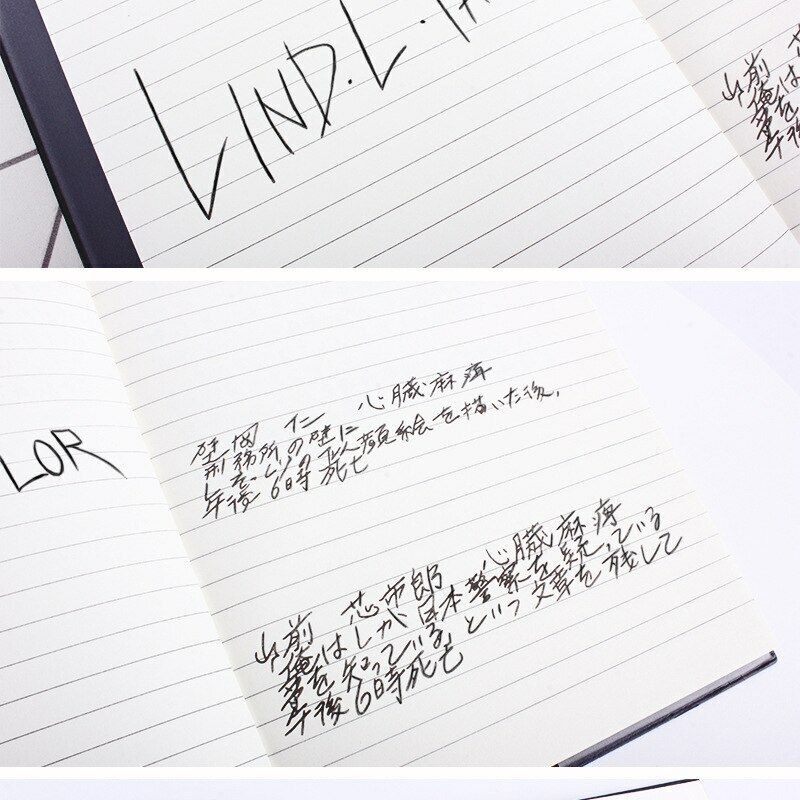 LIND.L.TA
山前
俺は
LOR
仁 心臓麻痺
刑務所の壁に
似顔絵を描いた後、
午後6時死亡
山前 芯市郎 心臓麻痺
俺はしが日本警察を疑っている
を知っている。という文章を残して
午後6時死亡